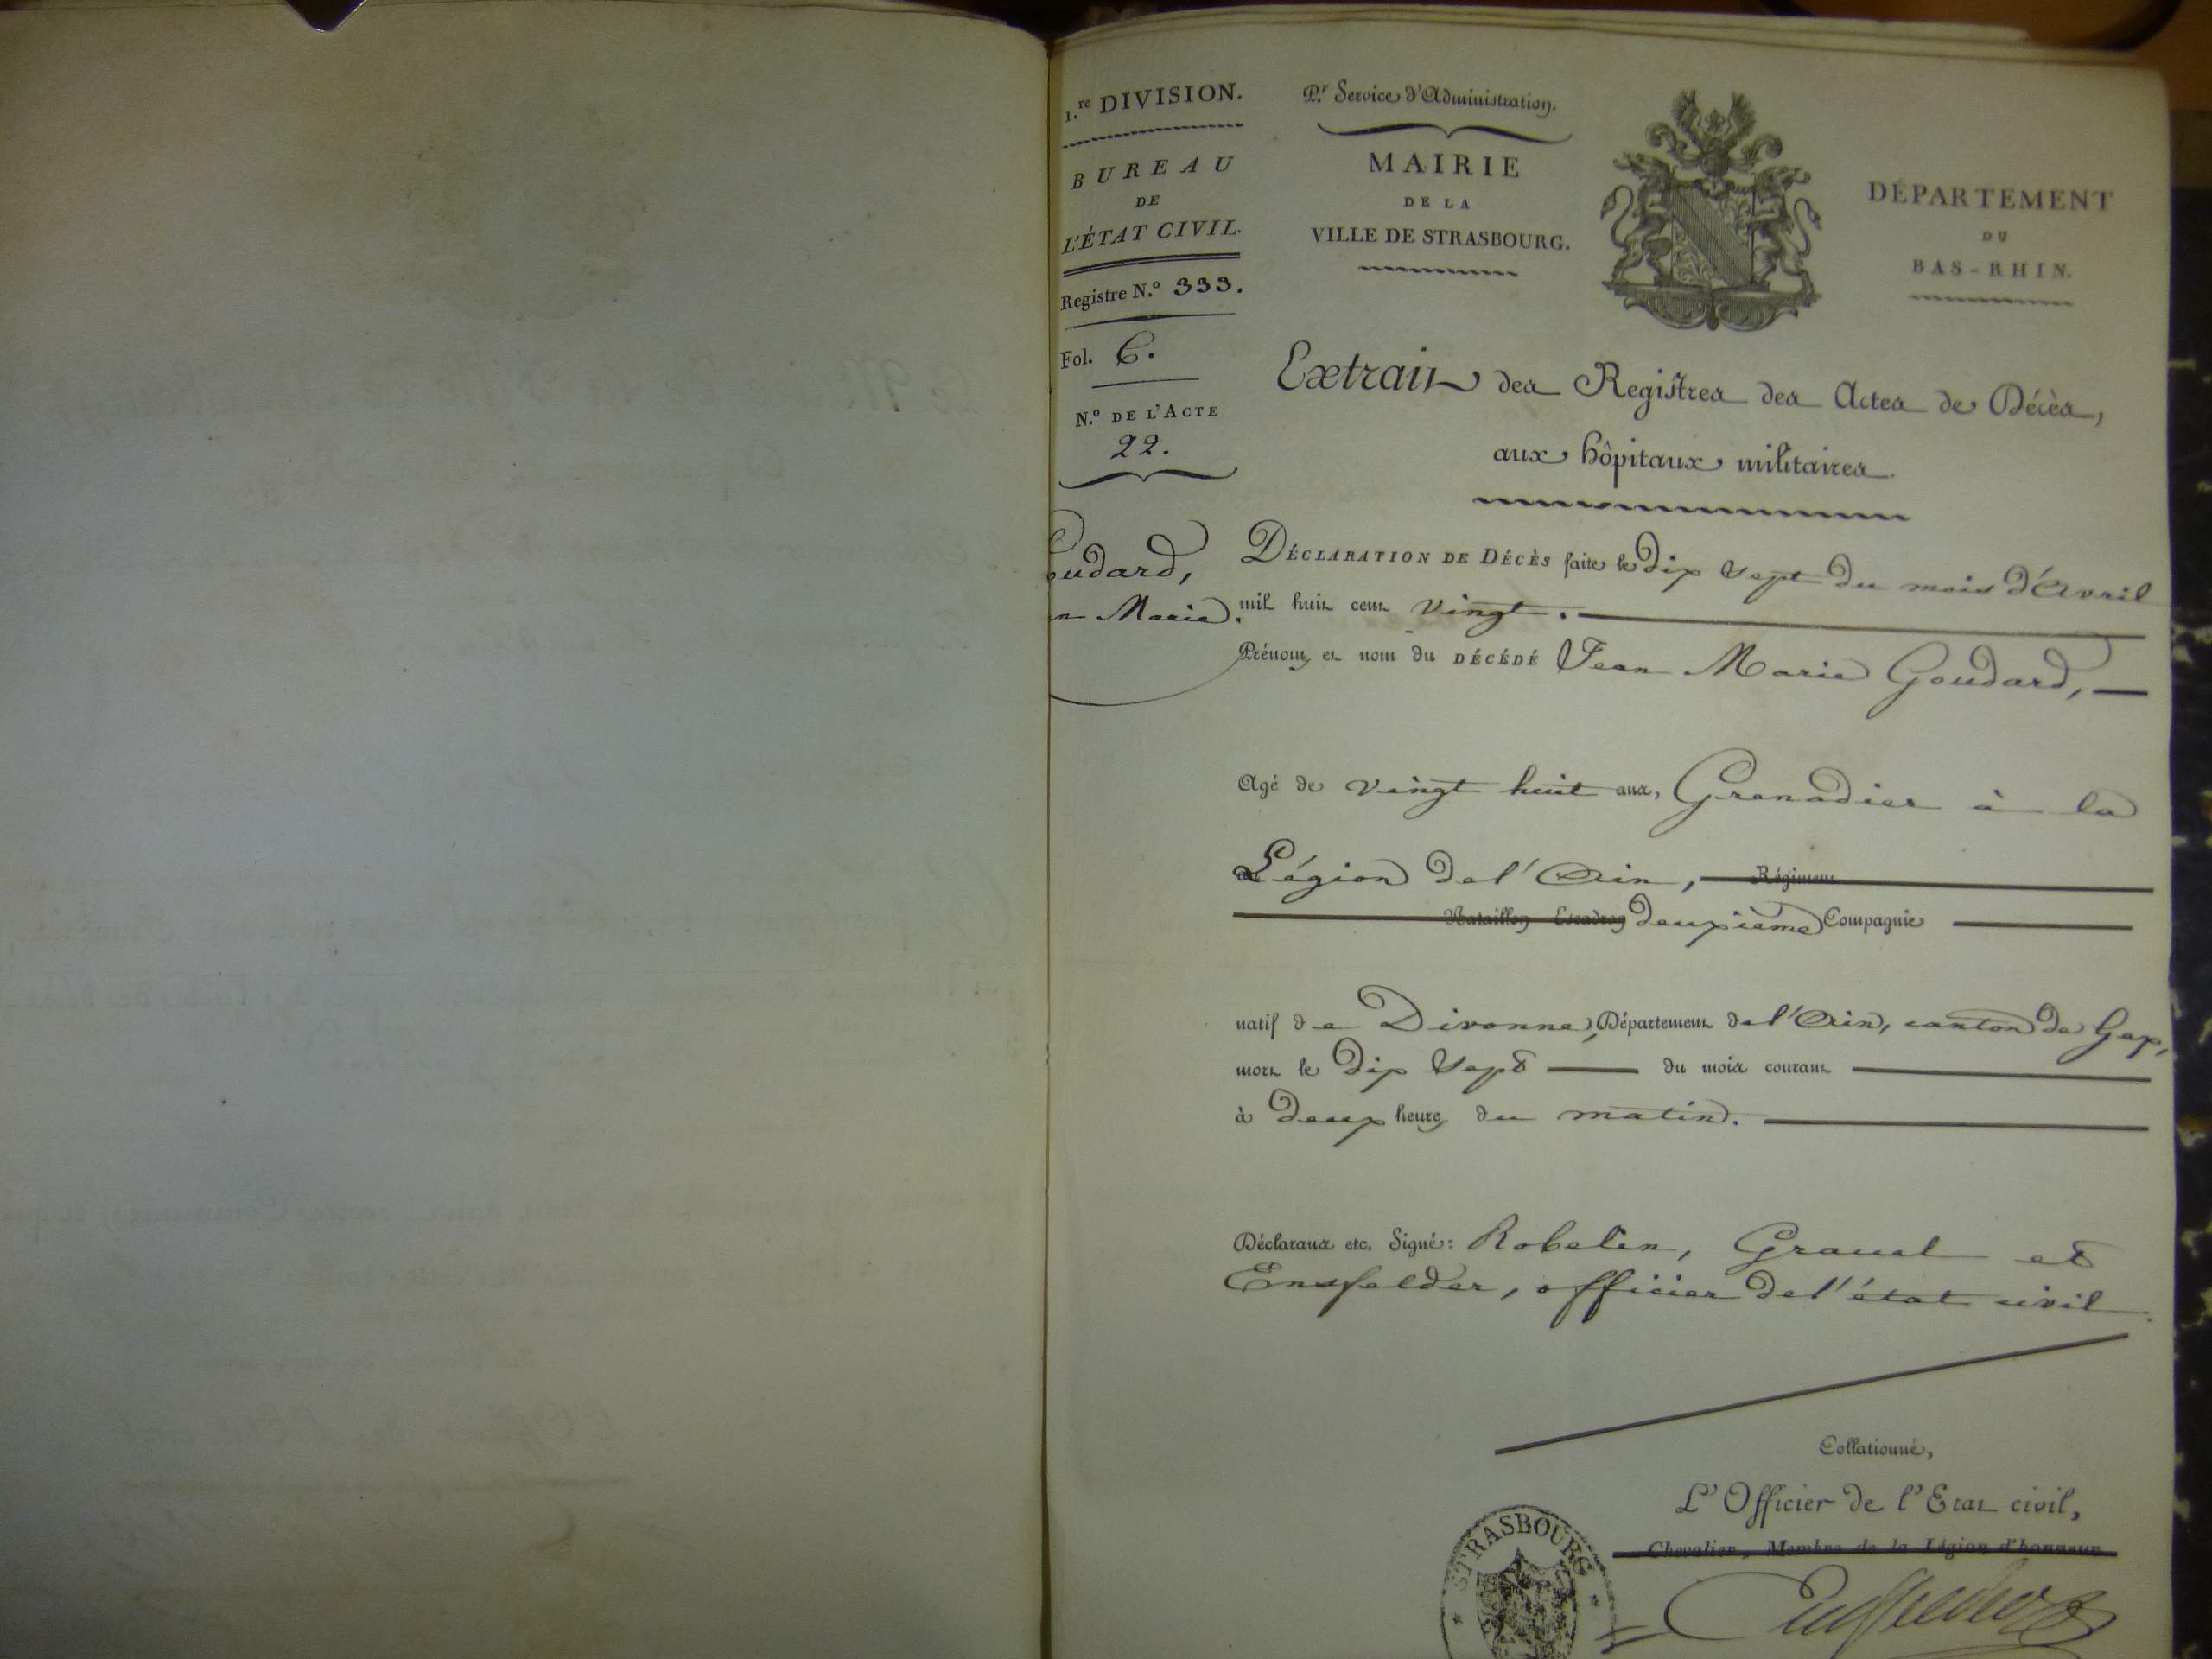 1.re DIVISION.
BUREAU
DE
L'ÉTAT CIVIL.
Registre N.o 333.
Fol. 6.
N.o DE L'ACTE
22.
oudard,
n Marie.
P.r Service d'Administration.
MAIRIE
DE LA
VILLE DE STRASBOURG.
DÉPARTEMENT
DU
BAS-RHIN.
Extrait des Registres des Actes de Décès,
aux hôpitaux militaires.
DÉCLARATION DE DÉCÈS faite le dix sept du mois d'Avril
mil huit cent vingt.
Prénom et nom du DÉCÉDÉ Jean Marie Goudard,
Agé de vingt huit ans, Grenadier à la
Légion de l'Ain, Régiment
Bataillon Escadron deuxième Compagnie
natif de Divonne, Département de l'Ain, canton de Gex,
mort le dix sept du mois courant
à deux heure du matin.
Déclarans etc. Signé: Robelin, Grauel et
Ensfelder, officier de l'état civil.
Collationné,
L'Officier de l'Etat civil,
Chevalier, Membre de la Légion d'honneur
STRASBOURG
Ensfelder